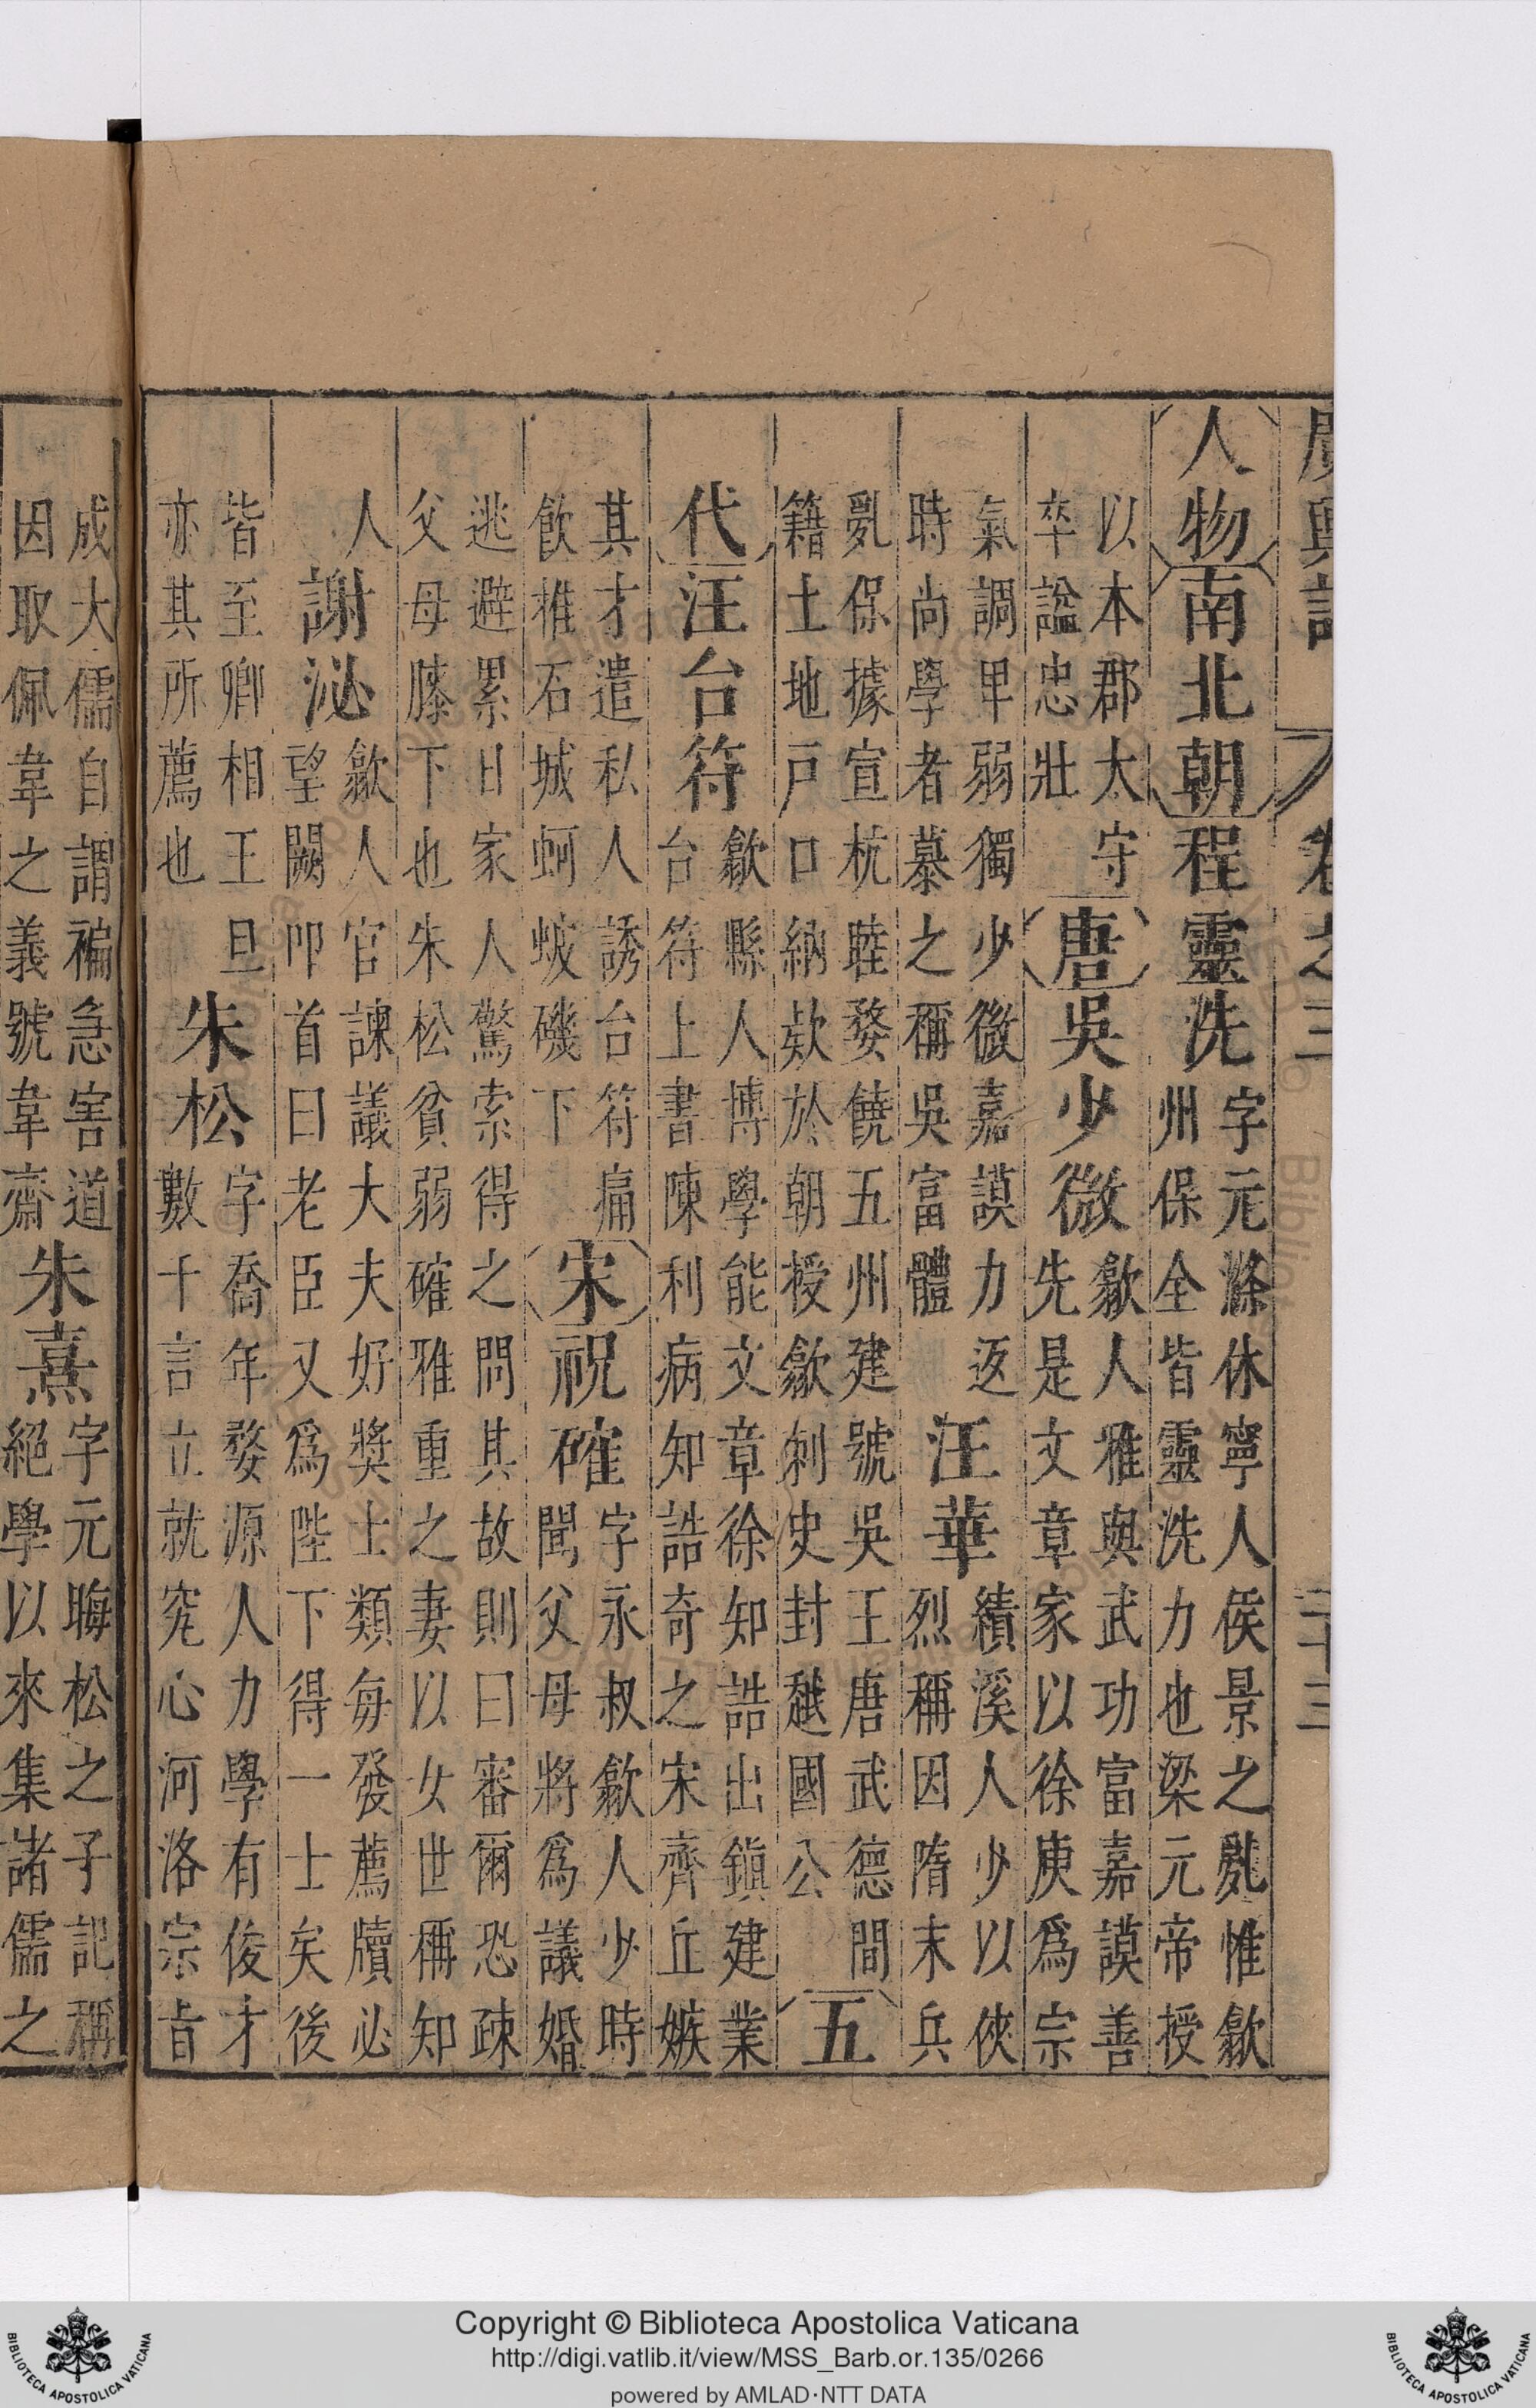 廣輿記 卷之三 二十三
人物 南北朝 程靈洗 字元滌休寧人侯景之亂惟歙
州保全皆靈洗力也梁元帝授
以本郡太守
卒諡忠壯
唐 吳少微 歙人雅與武功富嘉謨善
先是文章家以徐庾爲宗
氣調卑弱獨少微嘉謨力返
時尚學者慕之稱吳富體
汪華 績溪人少以俠
烈稱因隋末兵
亂保據宣杭睦婺饒五州建號吳王唐武德間
籍土地戶口納欵於朝授歙刺史封越國公
五
代 汪台符 歙縣人博學能文章徐知誥出鎮建業
台符上書陳利病知誥奇之宋齊丘嫉
其才遣私人誘台符痛
飲推石城蚵蚾磯下
宋 祝確 字永叔歙人少時
聞父母將爲議婚
逃避累日家人驚索得之問其故則曰審爾恐疎
父母膝下也朱松貧弱確雅重之妻以女世稱知
人
謝泌 歙人官諫議大夫好獎士類每發薦牘必
望闕叩首曰老臣又爲陛下得一士矣後
皆至卿相王旦
亦其所薦也
朱松 字喬年婺源人力學有俊才
數千言立就究心河洛宗旨
成大儒自謂褊急害道
因取佩韋之義號韋齋
朱熹 字元晦松之子記稱
絕學以來集諸儒之
Copyright © Biblioteca Apostolica Vaticana
http://digi.vatlib.it/view/MSS_Barb.or.135/0266
powered by AMLAD·NTT DATA
BIBLIOTECA APOSTOLICA VATICANA
BIBLIOTECA APOSTOLICA VATICANA